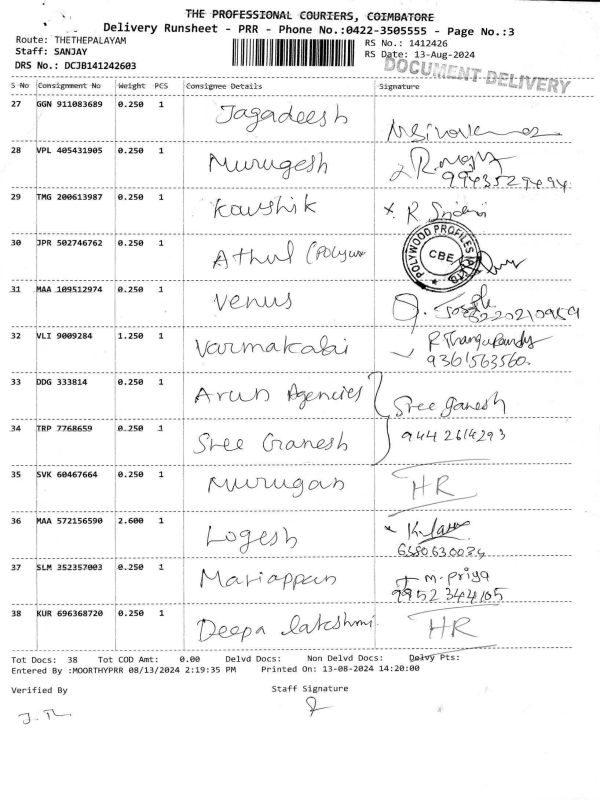 THE PROFESSIONAL COURIERS, COIMBATORE
Delivery Runsheet - PRR - Phone No.:0422-3505555 - Page No.:3
Route: THETHEPALAYAM RS No.: 1412426
Staff: SANJAY RS Date: 13-Aug-2024
DRS No.: DCJB141242603 DOCUMENT DELIVERY
S No Consignment No Weight PCS Consignee Details Signature
27 GGN 911083689 0.250 1 Jagadeesh
28 VPL 405431905 0.250 1 Murugesh
9943529494
29 TMG 200613987 0.250 1 Kowshik
30 JPR 502746762 0.250 1 Athul (Polyw
POLYWOOD PROFILES (P) LTD
CBE
31 MAA 109512974 0.250 1 Venus
32 VLI 9009284 1.250 1 Varmakalai R Thangapandy
9361563560.
33 DDG 333814 0.250 1 Arun Agencies Sree ganesh
34 TRP 7768659 0.250 1 Sree Ganesh 944 2614293
35 SVK 60467664 0.250 1 Murugan HR
36 MAA 572156590 2.600 1 Logesh
37 SLM 352357003 0.250 1 Mariappan m. priya
9952344105
38 KUR 696368720 0.250 1 Deepa lakshmi HR
Tot Docs: 38 Tot COD Amt: 0.00 Delvd Docs: Non Delvd Docs: Delvy Pts:
Entered By :MOORTHYPRR 08/13/2024 2:19:35 PM Printed On: 13-08-2024 14:20:00
Verified By Staff Signature